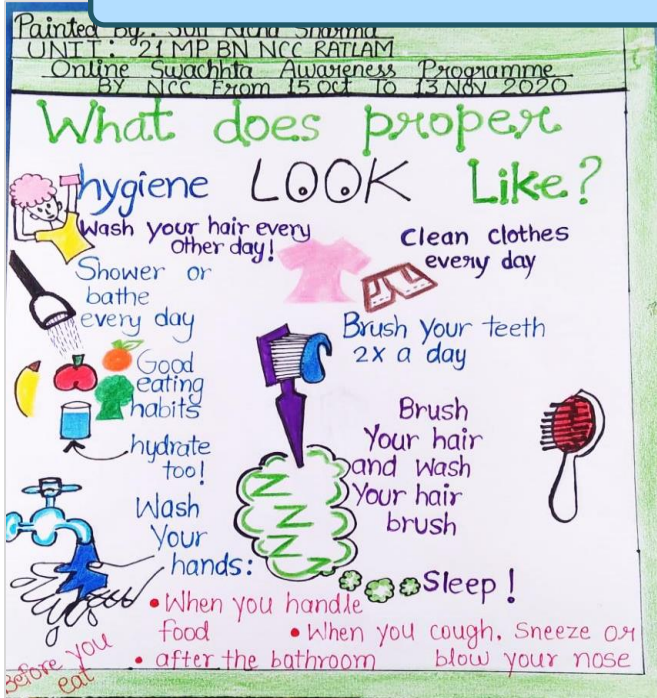 Painted By.: SUO Richa Sharma
UNIT: 21 MP BN NCC RATLAM
Online Swachhta Awareness Programme
BY NCC From 15 oct To 13 Nov 2020
What does proper
hygiene LOOK Like?
Wash your hair every
other day!
Clean clothes
every day
Shower or
bathe
every day
Brush Your teeth
2x a day
Good
eating
habits
hydrate
too!
Brush
Your hair
and Wash
Your hair
brush
Wash
Your
hands:
Z
Z
Z
Sleep!
• When you handle
food
• When you cough, Sneeze or
blow your nose
• after the bathroom
Before you
eat